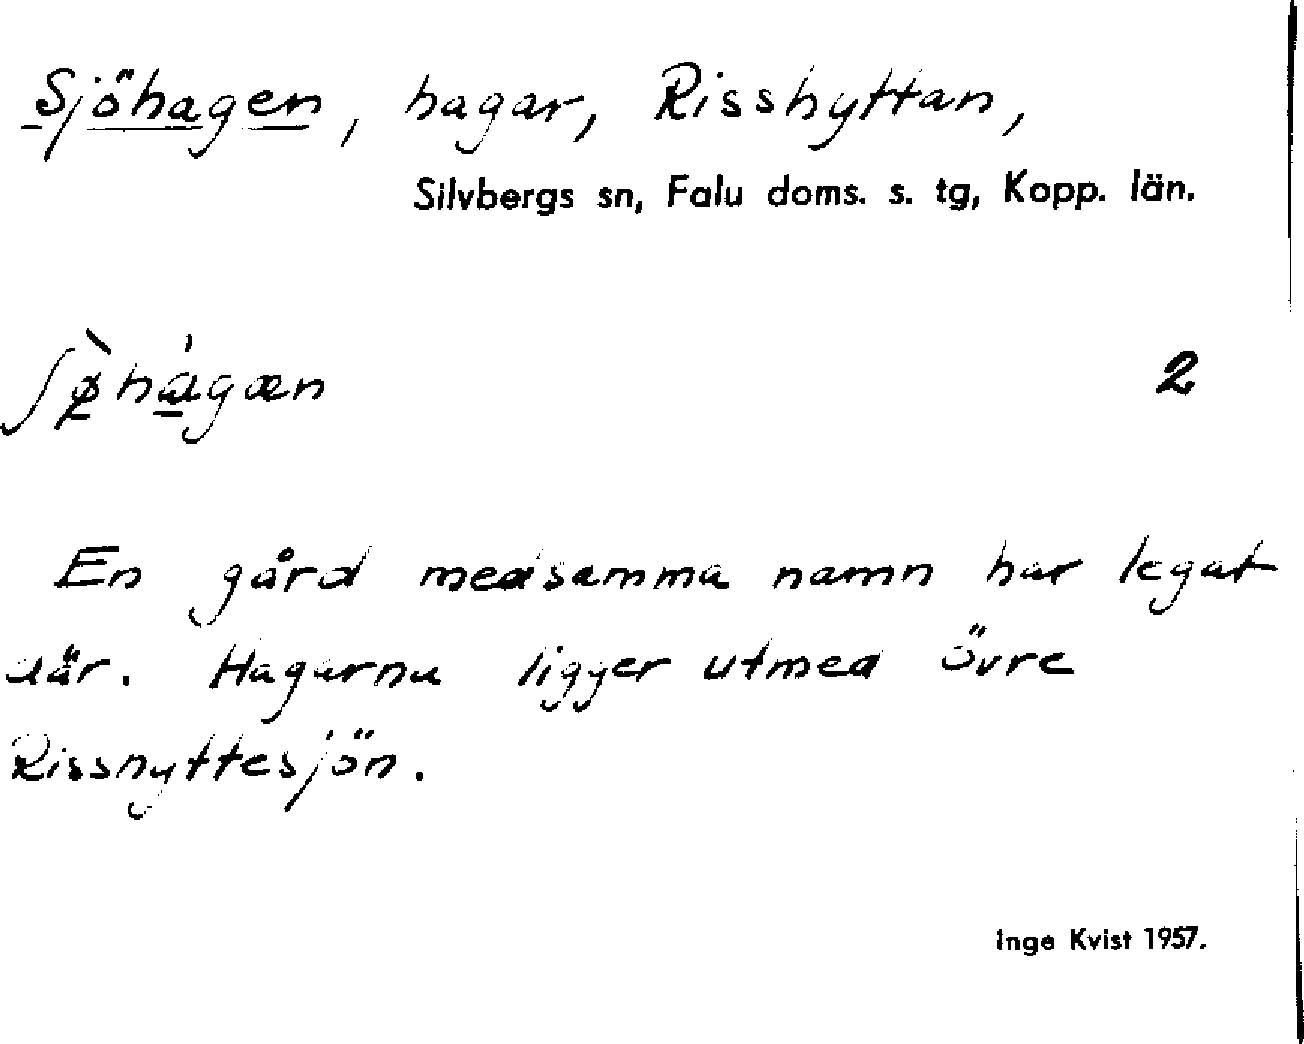 Sjöhagen, hagar, Risshyttan,
Silvbergs sn, Falu doms. s. tg, Kopp. län.
ʃø̀hágæn 2
En gård medsamma namn har legat
där. Hagarna ligger utmed Övre
Risshyttesjön.
Inge Kvist 1957.